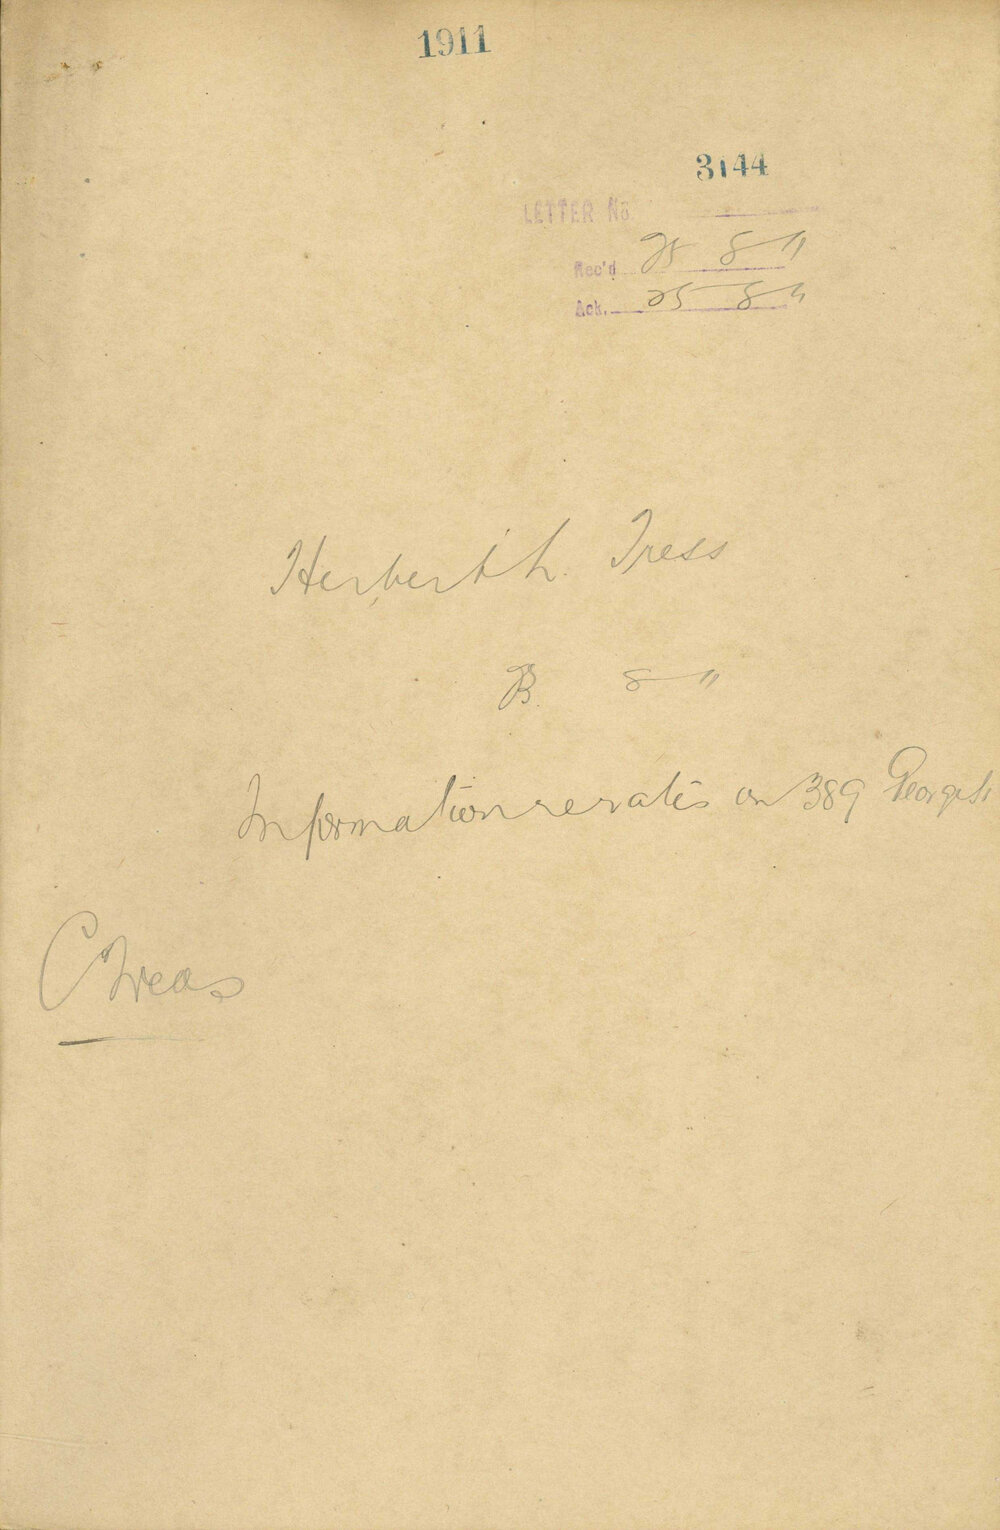 1911
3144
LETTER No
Rec'd 25 8 11
Ack. 25 8 11
Herbert h. Tress
B. 8 11
Information re rates on 389 George St
C Treas